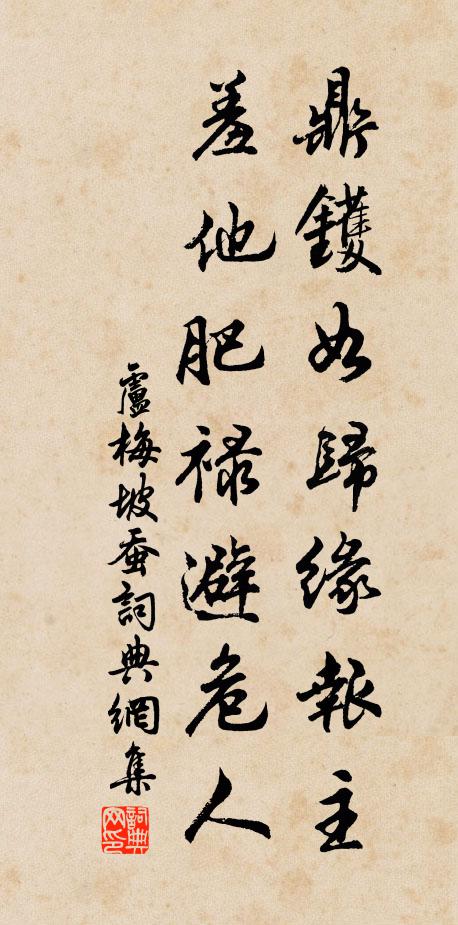 鼎鑊如歸緣報主
羞他肥祿避危人
盧梅坡蚕詞典網集
詞典網印